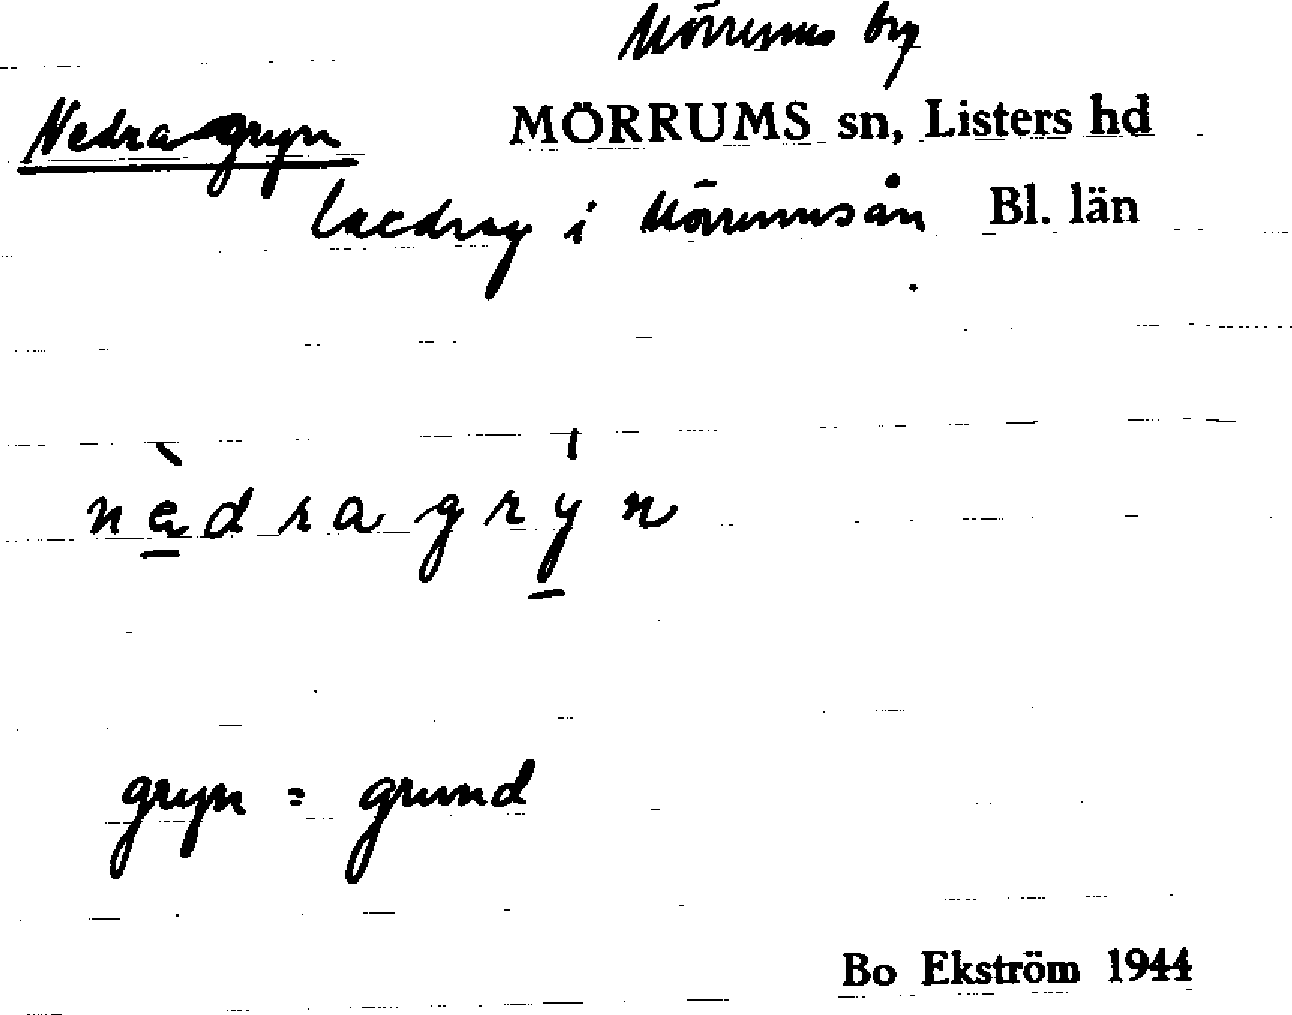 Mörrums by
Nedragryn MÖRRUMS sn, Listers hd
laxdrag i Mörrumsån Bl. län
nèdragrýn
gryn = grund
Bo Ekström 1944